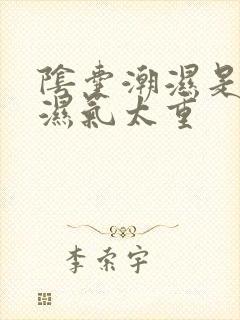 陰囊潮濕是
濕氣太重
李索宇